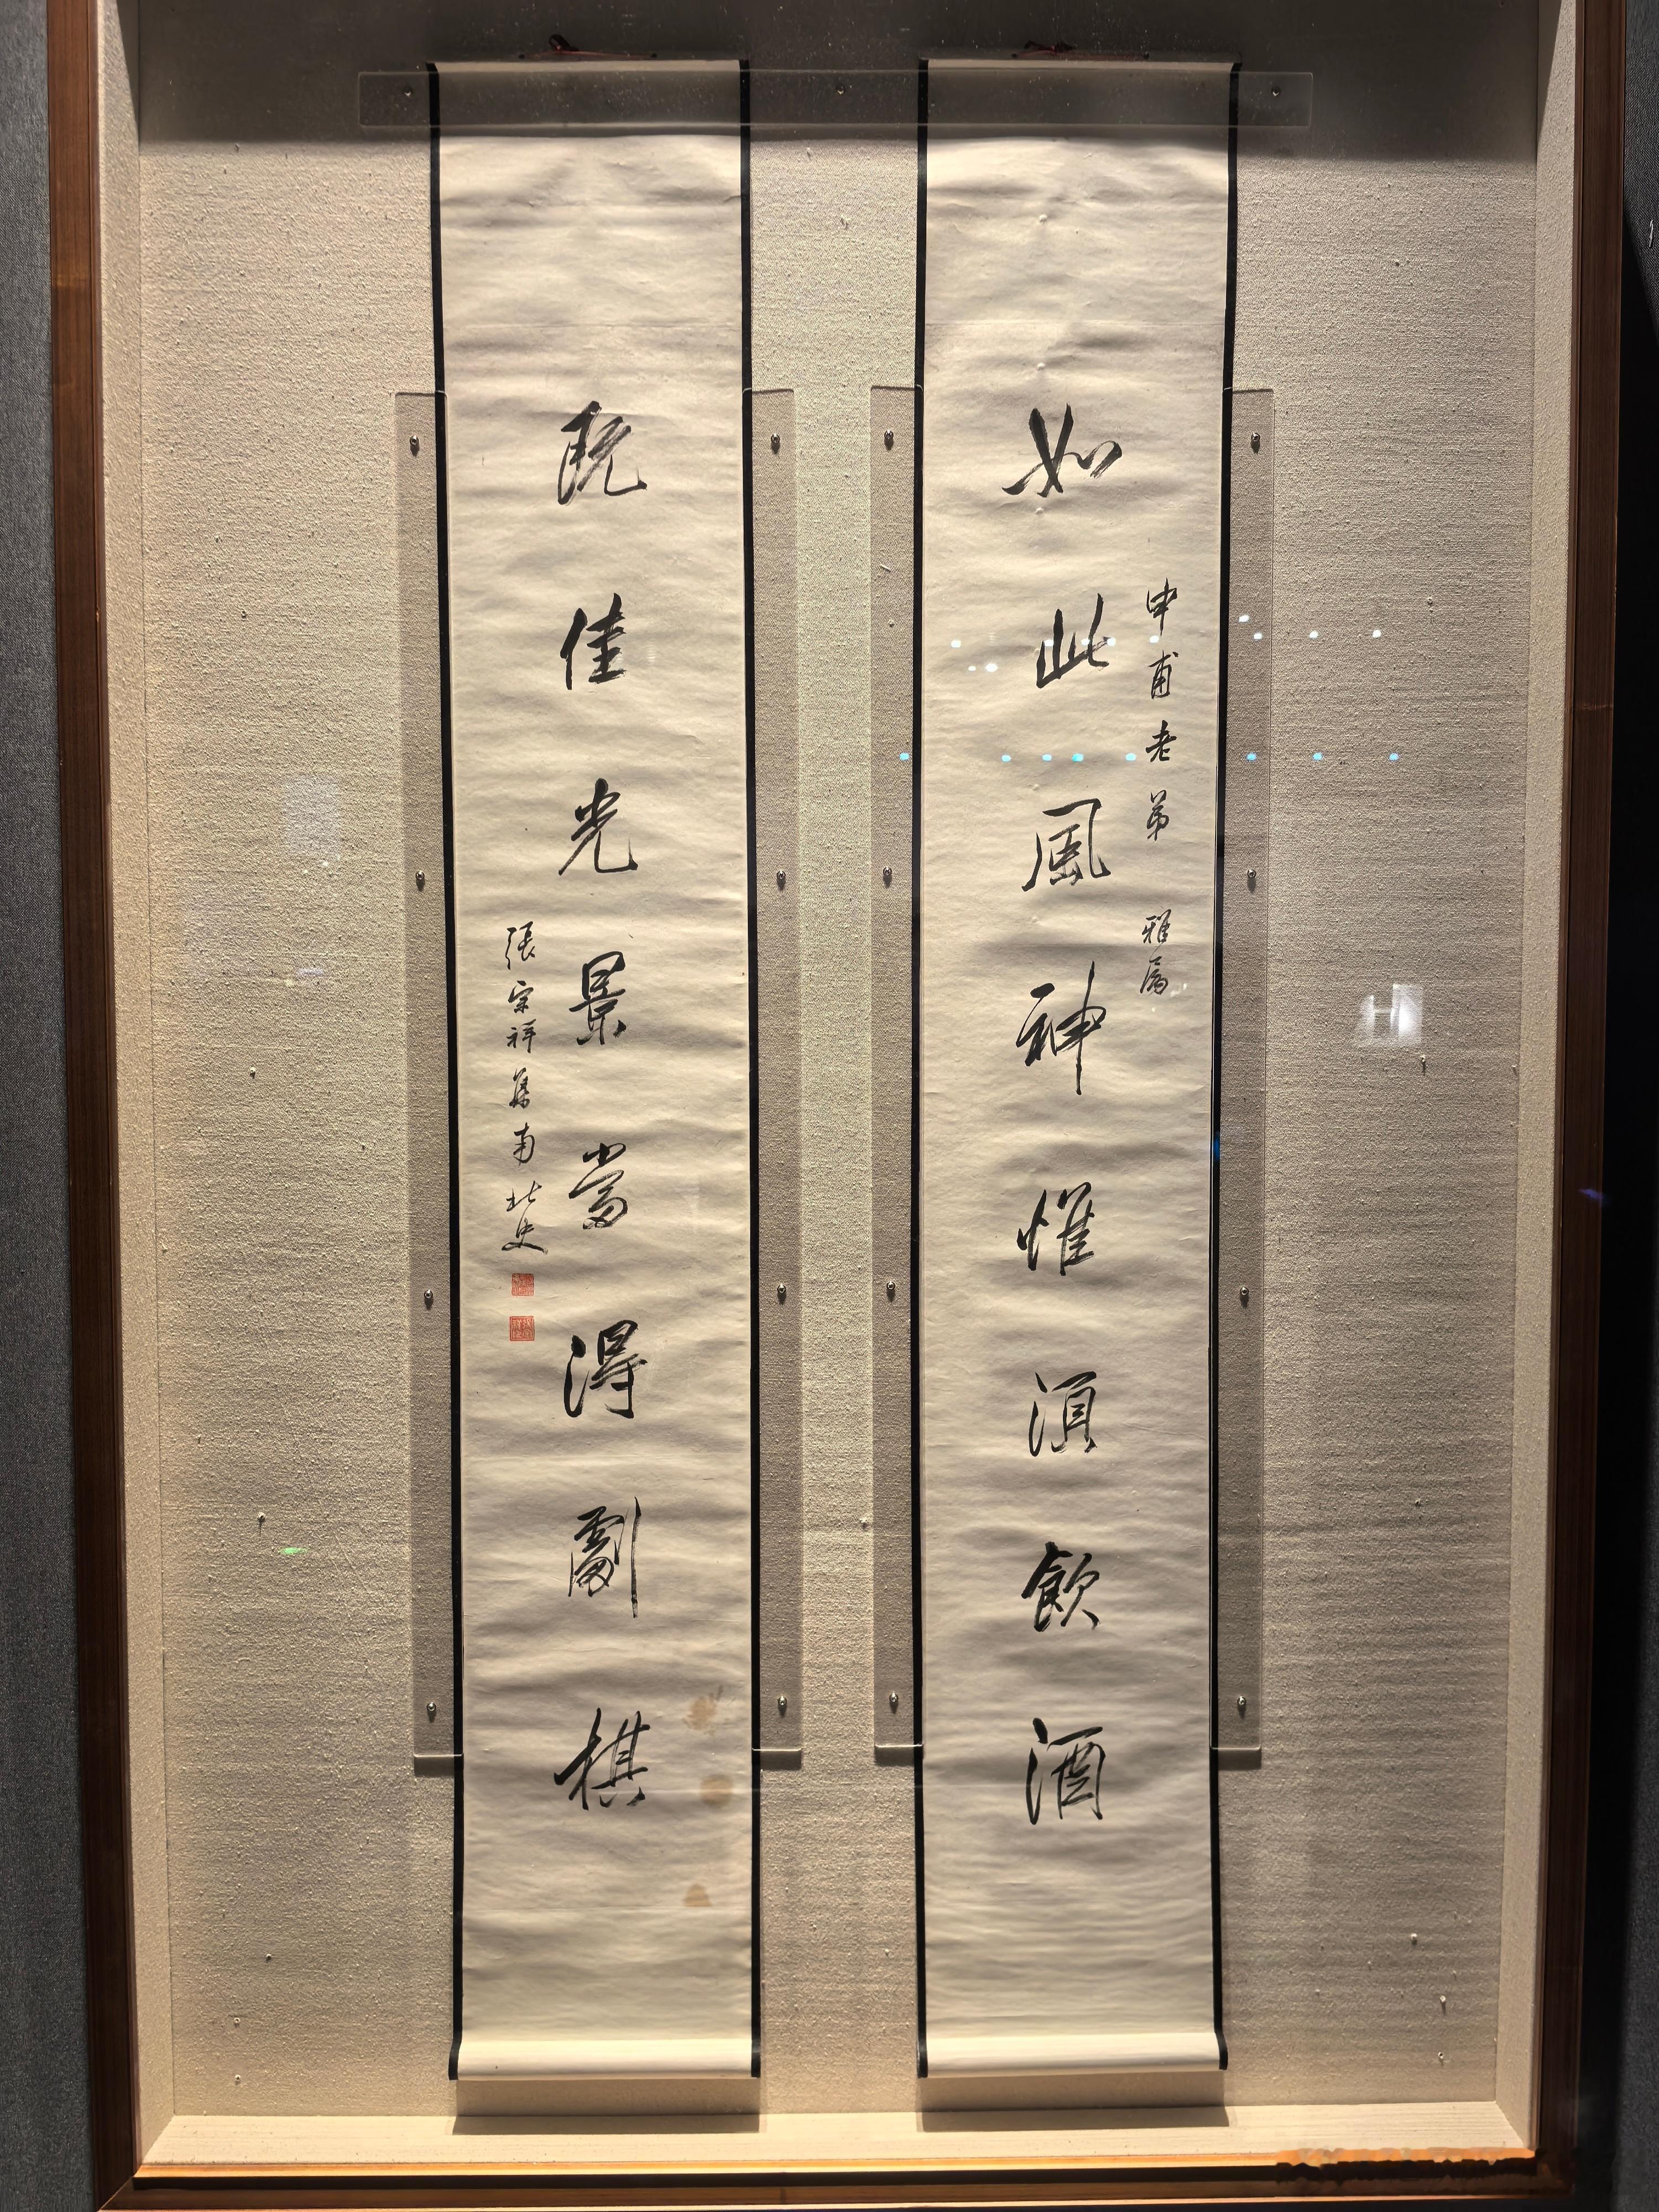 如此風神惟須飲酒
申甫老弟 雅属
既佳光景當得劇棋
張宗祥集南北史